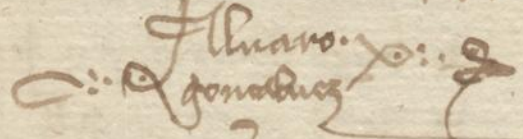 Alluaro
gonçalluez